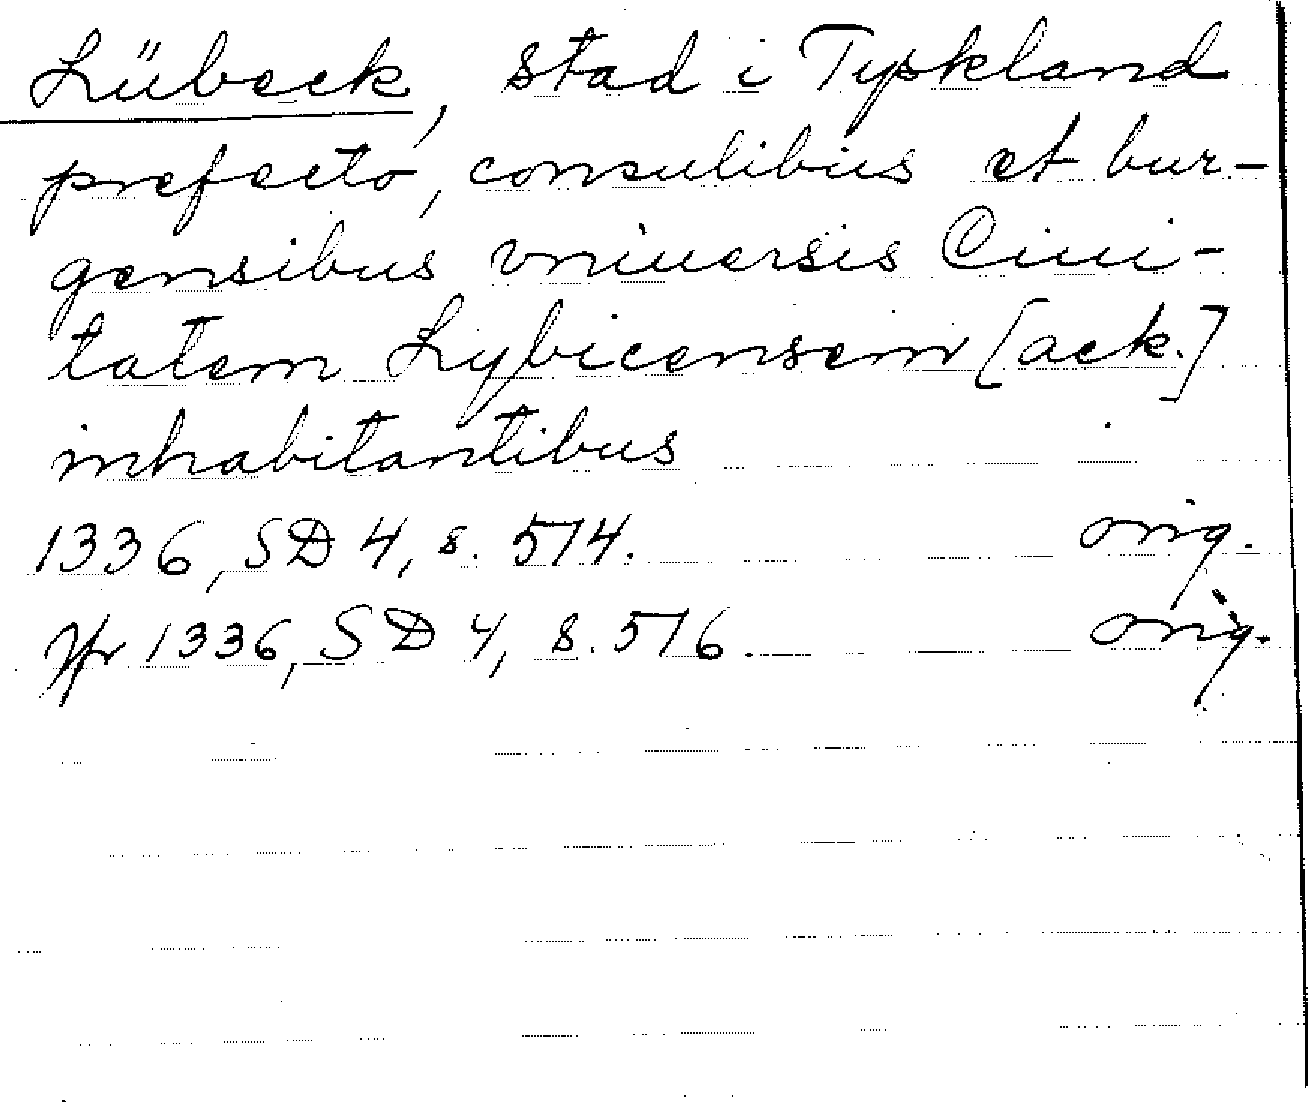 Lübeck, stad i Tyskland
prefecto, consulibus et bur-
gensibus vniuersis Ciui-
tatem Lybicensem [ack.]
inhabitantibus
1336, SD 4, s. 514. orig.
Jfr 1336, SD 4, s. 516. orig.